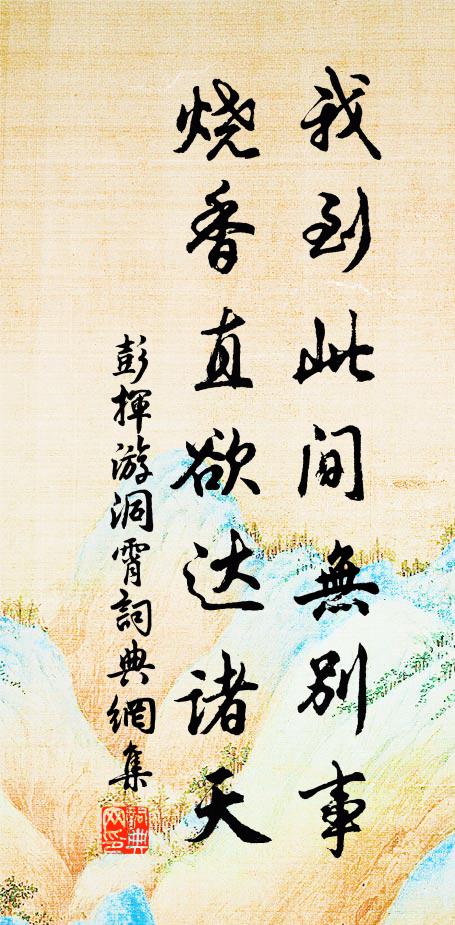 我到此间無别事
烧香直欲达诸天
彭揮游洞霄詞典網集
詞典
网印